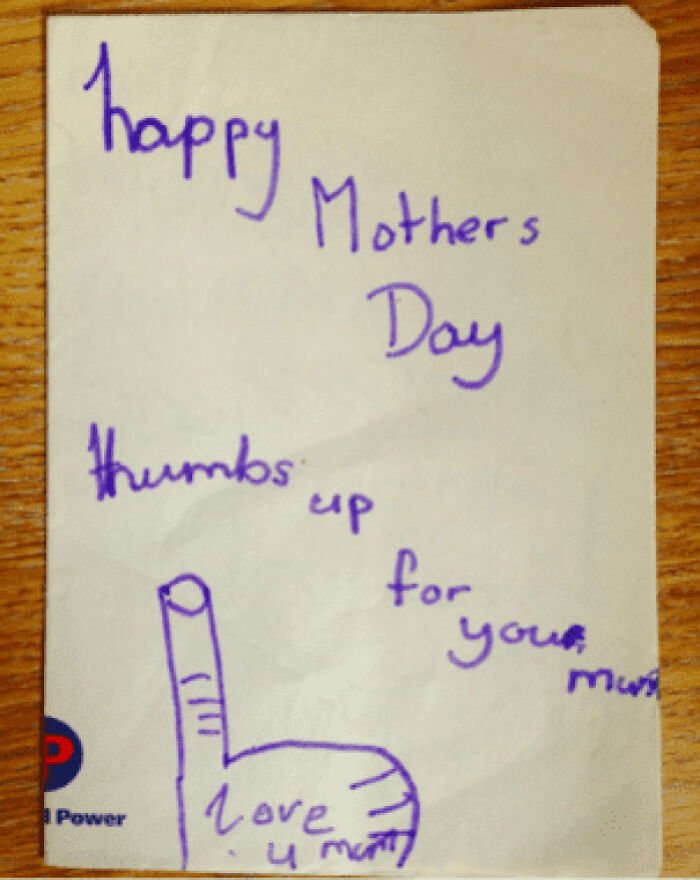 happy
Mothers
Day
thumbs
up
for
you
mum
P
Power
Love
u mum